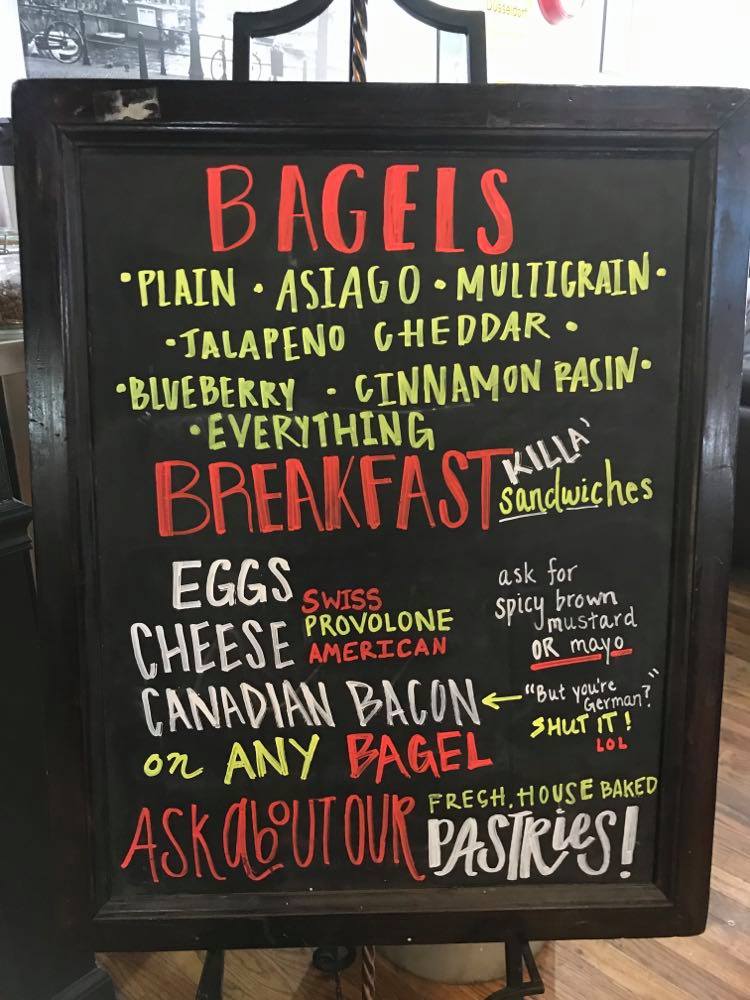 Dusseldorf
BAGELS
•PLAIN • ASIAGO • MULTIGRAIN•
•JALAPENO CHEDDAR •
•BLUEBERRY • CINNAMON RASIN•
•EVERYTHING
BREAKFAST KILLA' sandwiches
EGGS
CHEESE
SWISS
PROVOLONE
AMERICAN
ask for
spicy brown
mustard
OR mayo
CANADIAN BACON
"But you're
German?"
SHUT IT!
LOL
on ANY BAGEL
ASK AbOUT OUR
FRESH, HOUSE BAKED
PASTRieS!